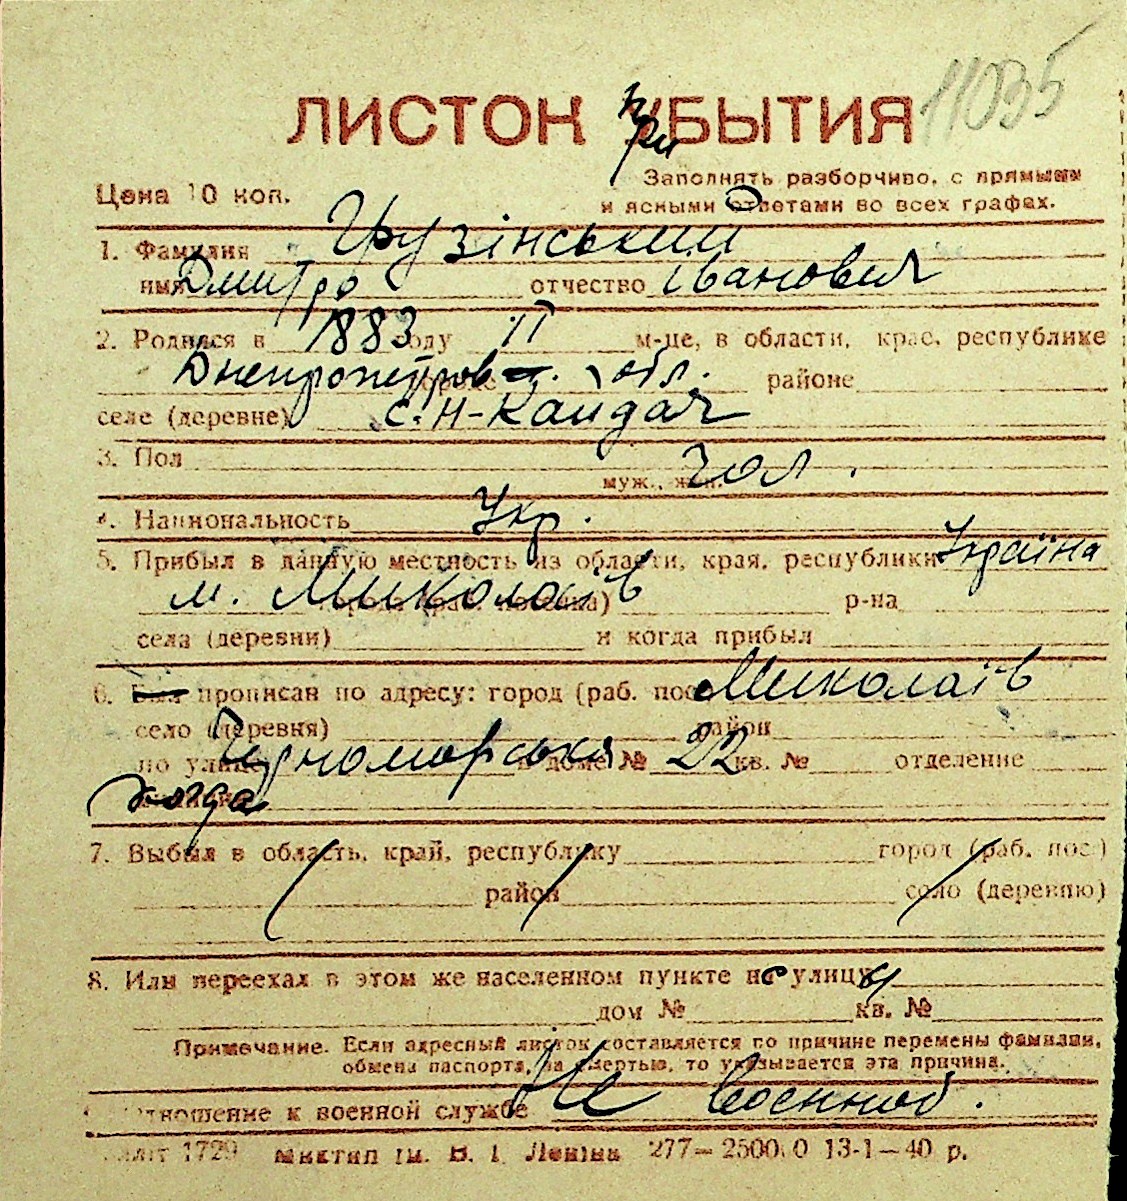 11035
ЛИСТОК при БЫТИЯ
Заполнять разборчиво, с прямыми
Цена 10 коп. и ясными ответами во всех графах.
1. Фамилия Грузінський
имя Дмитро отчество Іванович
2. Родился в 1883 году II м-це, в области, крае, республике
Днепропетров обл. районе
селе (деревне) с. Н-Кайдач
3. Пол
муж., жен. Чол.
4. Национальность Укр.
5. Прибыл в данную местность из области, края, республики Україна
м. Миколаїв р-на
села (деревни) и когда прибыл
6. Был прописан по адресу: город (раб. пос Миколаїв
село (деревня) район
по улице Чорноморська в доме № 22 кв. № отделение
когда
7. Выбыл в область, край, республику город (раб. пос.)
район село (деревню)
8. Или переехал в этом же населенном пункте с улицы
дом № кв. №
Примечание. Если адресный листок составляется по причине перемены фамилии,
обмена паспорта, за смертью, то указывается эта причина.
Отношение к военной службе Не военноб.
1729 Миктип ім. В. І. Леніна 277—2500.0 13-1—40 р.